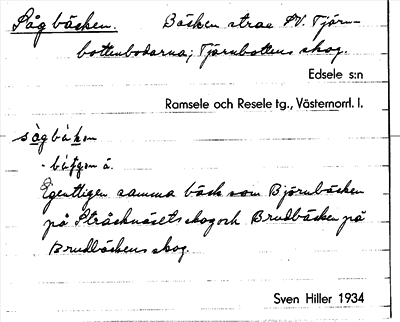 Sågbäcken. Bäcken strax SV. Tjärn-
bottenbodarna; Tjärnbottens skog.
Edsele s:n
Ramsele och Resele tg., Västernorrl. l.
Egentligen samma bäck som Björnbäcken
på Stråsknäsets skog och Brudbäcken på
Brudbäckens skog
Sven Hiller 1934